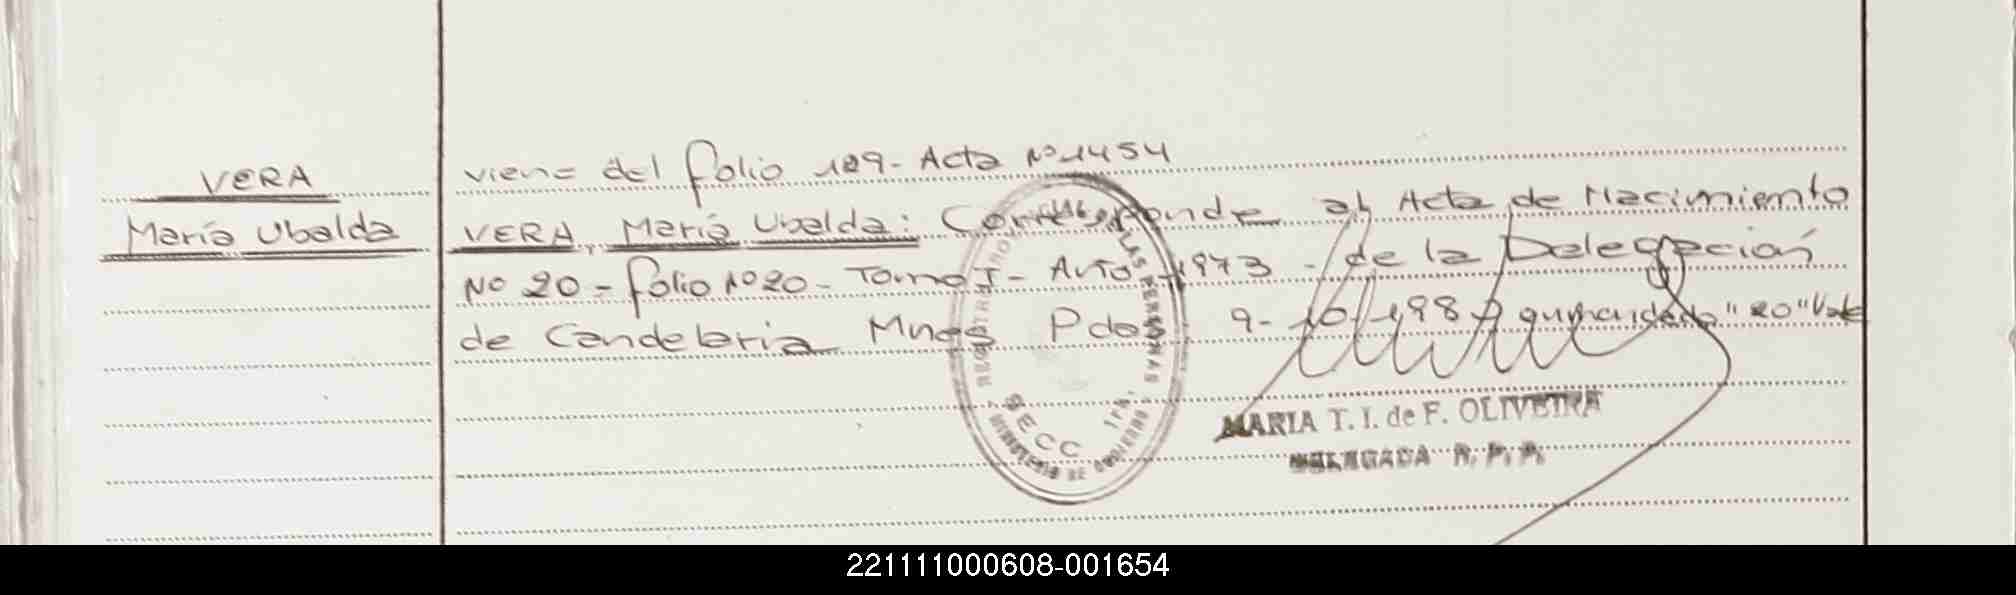 VERA
María Ubalda
viene del folio 129- Acta Nº 1454
VERA, María Ubalda: Corresponde al Acta de Nacimiento
Nº 20 - folio Nº 20 - Tomo I - Año 1973 - de la Delegación
de Candelaria Mnes Pdas 9-10-198 enmendado "20" Vale
REGISTRO LAS PERSONAS
SECC 1ra.
MINISTERIO DE GOBIERNO
MARIA T. I. de F. OLIVEIRA
DELEGADA R. P. P.
221111000608-001654